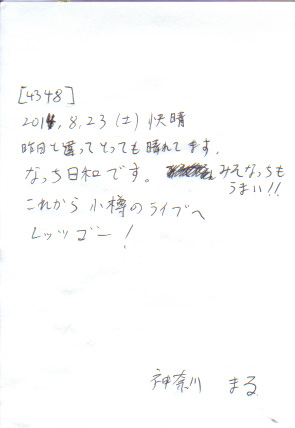 [4348]
2014,8,23(土)快晴
昨日と違ってとっても晴れてます。
なっち日和です。 みそなっちも
うまい!!
これから小樽のライブへ
レッツゴー!
神奈川 まる